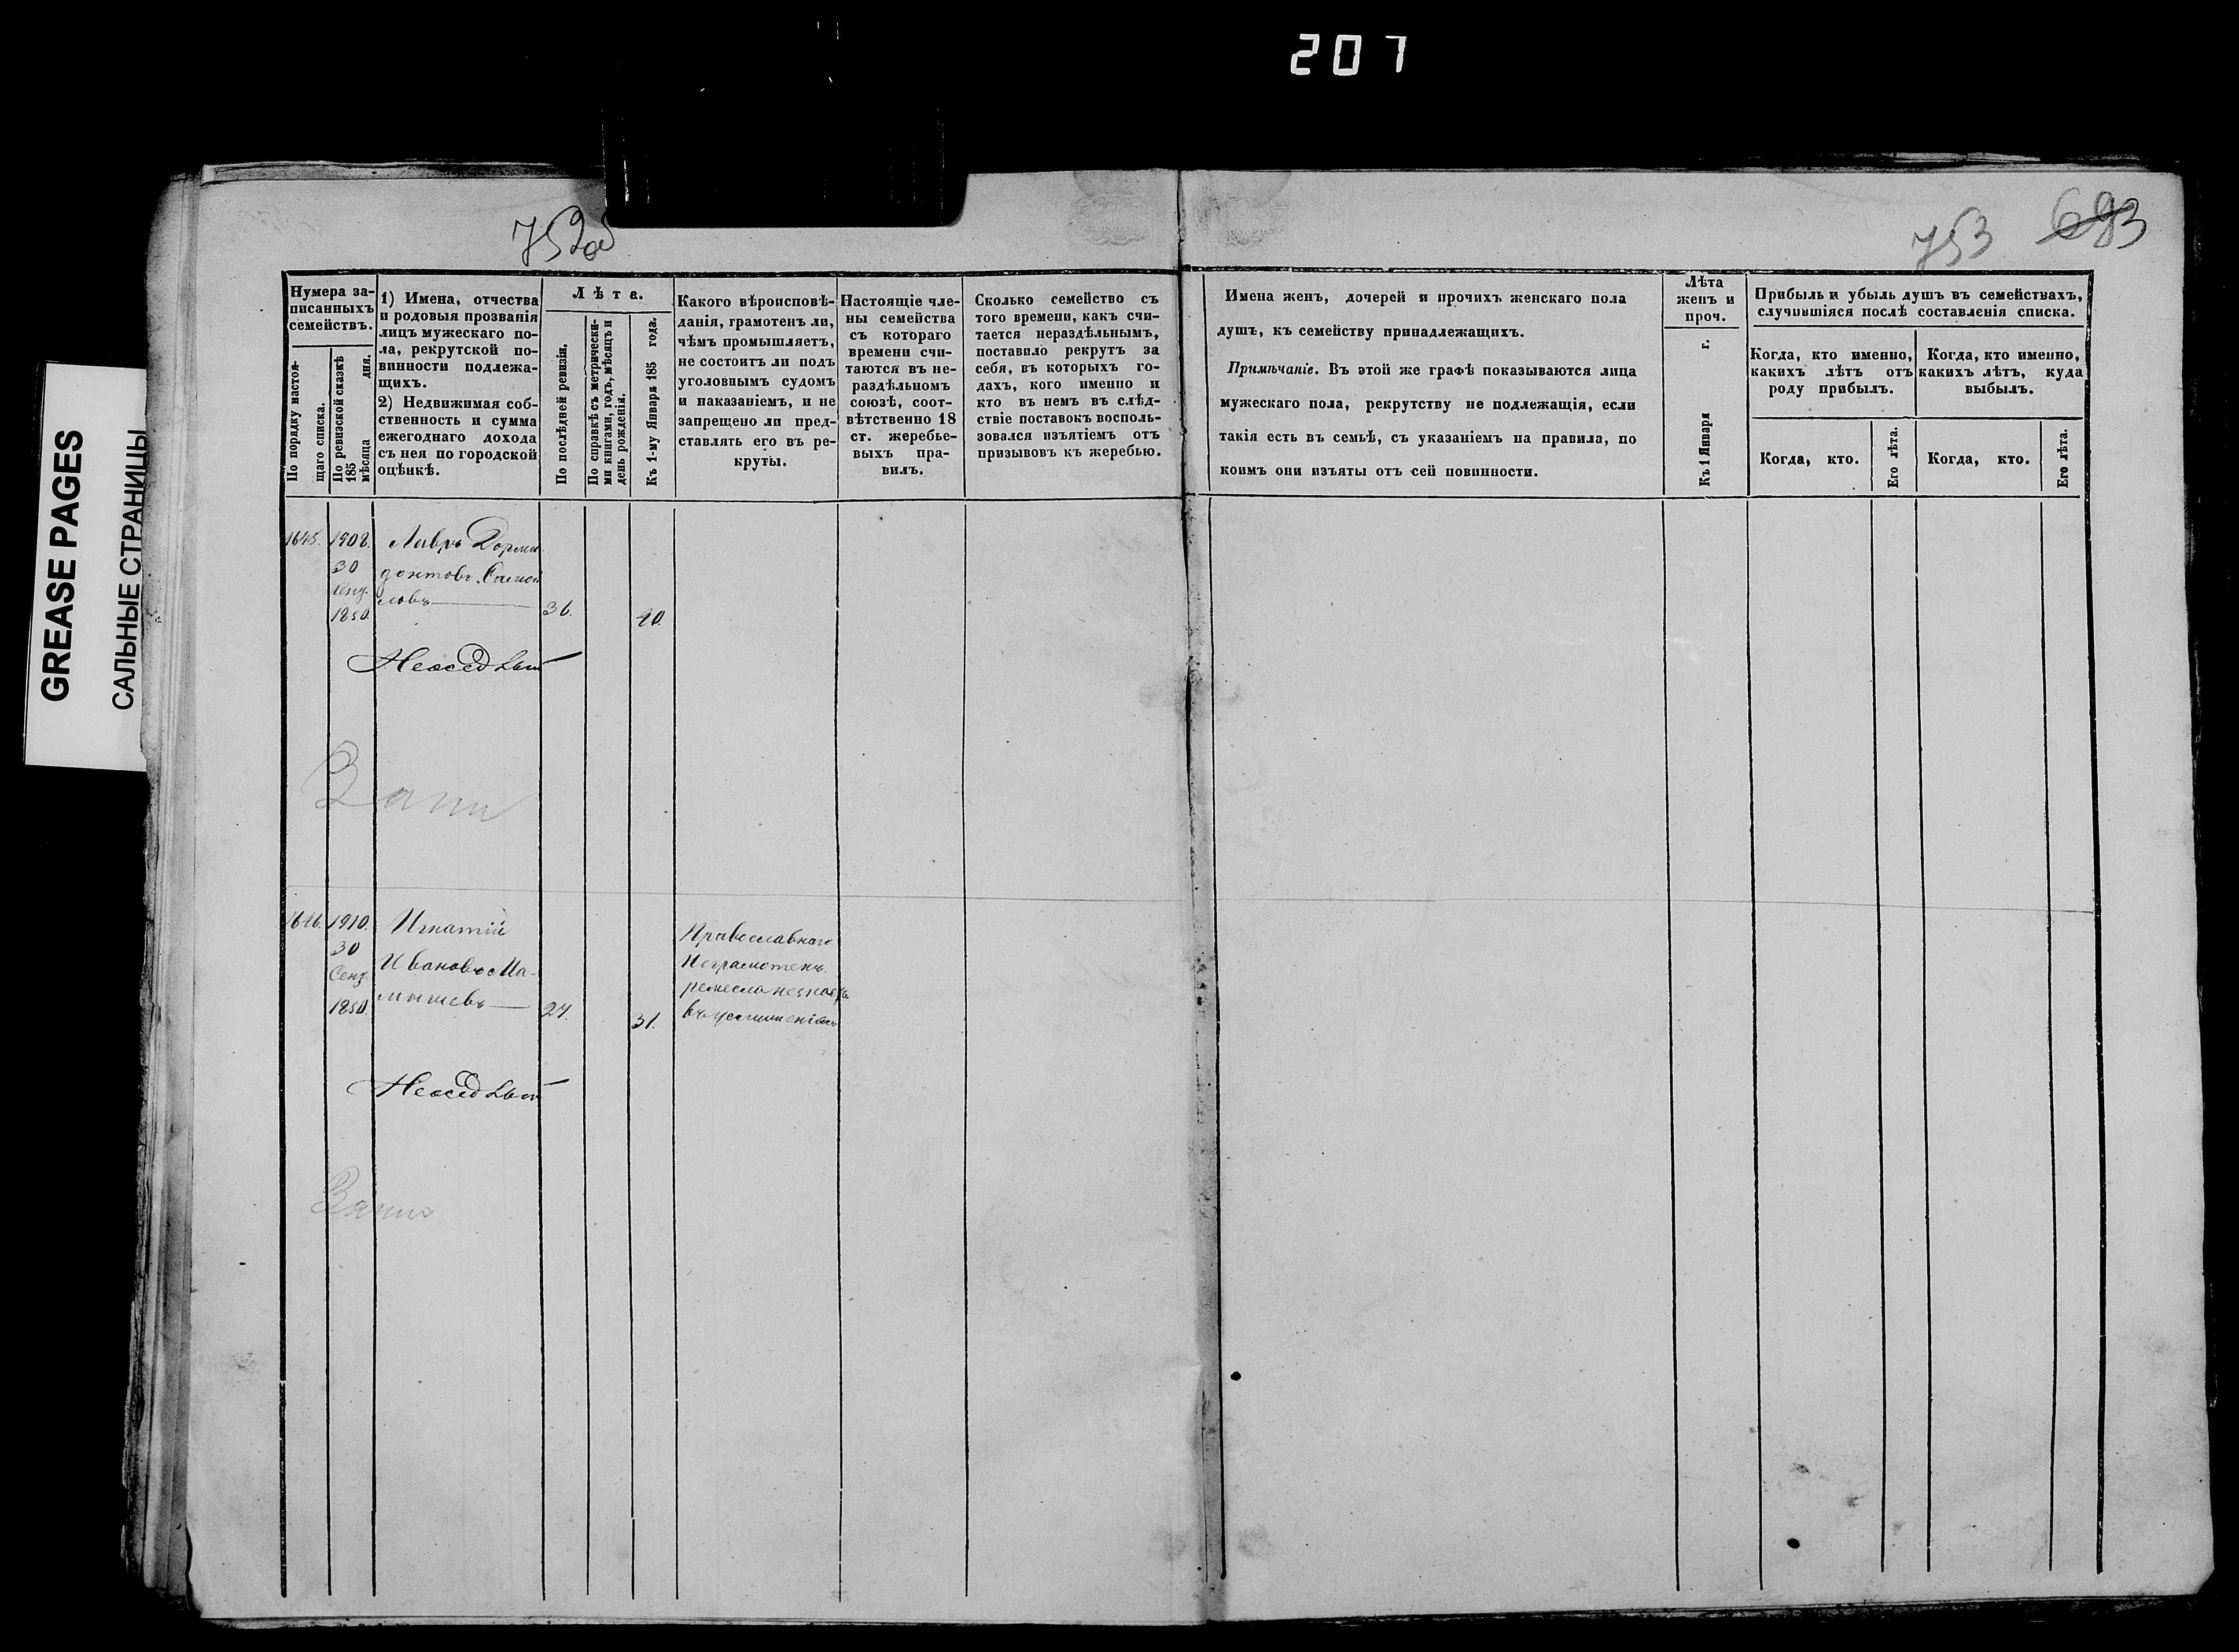 207
GREASE PAGES
САЛЬНЫЕ СТРАНИЦЫ
752об
753 683
Нумера за-
писанныхъ
семействъ.
По порядку настоя-
щаго списка.
По ревизской сказкѣ
185 дня.
мѣсяца
1) Имена, отчества
и родовыя прозванія
лицъ мужескаго по-
ла, рекрутской по-
винности подлежа-
щихъ.
2) Недвижимая соб-
ственность и сумма
ежегоднаго дохода
съ нея по городской
оцѣнкѣ.
Лѣта.
По послѣдней ревизіи.
По справкѣ съ метрически-
ми книгами, годъ, мѣсяцъ и
день рожденія.
Къ 1-му Января 185 года.
Какого вѣроисповѣ-
данія, грамотенъ ли,
чѣмъ промышляетъ,
не состоитъ ли подъ
уголовнымъ судомъ
и наказаніемъ, и не
запрещено ли пред-
ставлять его въ ре-
круты.
Настоящіе чле-
ны семейства
съ котораго
времени счи-
таются въ не-
раздѣльномъ
союзѣ, соот-
вѣтственно 18
ст. жеребье-
выхъ пра-
вилъ.
Сколько семейство съ
того времени, какъ счи-
тается нераздѣльнымъ,
поставило рекрутъ за
себя, въ которыхъ го-
дахъ, кого именно и
кто въ немъ въ слѣд-
ствіе поставокъ восполь-
зовался изъятіемъ отъ
призывовъ къ жеребью.
Имена женъ, дочерей и прочихъ женскаго пола
душъ, къ семейству принадлежащихъ.
Примѣчаніе. Въ этой же графѣ показываются лица
мужескаго пола, рекрутству не подлежащія, если
такія есть въ семьѣ, съ указаніемъ на правила, по
коимъ они изъяты отъ сей повинности.
Лѣта
женъ и
проч.
Къ 1 Января г.
Прибыль и убыль душъ въ семействахъ,
случившіяся послѣ составленія списка.
Когда, кто именно,
какихъ лѣтъ отъ
роду прибылъ.
Когда, кто именно,
какихъ лѣтъ, куда
выбылъ.
Когда, кто.
Его лѣта.
Когда, кто.
Его лѣта.
1645. 1908. Лавръ Дорми
30 донтовъ Самой
Сент.
1850. ловъ 36. 40.
Неосѣдлый
Запи
1646. 1910. Игнатій Православнаго
30 Ивановъ Ма- Неграмотенъ
Сент.
1850. мышевъ 24. 31.
Неосѣдлый